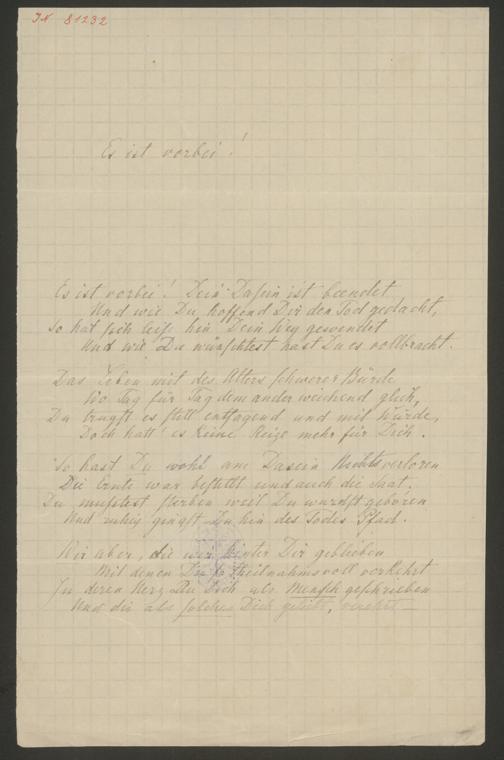 IN 81232
Es ist vorbei!
Es ist vorbei! Dein Dasein ist beendet
Und wie Du hoffend Dir den Tod gedacht,
So hat sich leis hin Dein Weg gewendet
Und wie Du wünschtest hast Du es vollbracht.
Das Leben mit des Alters schwerer Bürde
Wo Tag für Tag dem ander weichend glich,
Du trugst es still entsagend und mit Würde,
Doch hatt' es keine Reize mehr für Dich.
So hast Du wohl am Dasein Nichts verloren
Die Ernte war bestellt und auch die Saat.
Du musstest sterben weil Du wurdst geboren
Und ruhig gingst Du hin des Todes Pfad.
Wir aber, die wir hinter Dir geblieben
Mit denen Du theilnahmsvoll verkehrt
In deren Herz Du Dich als Mensch geschrieben
Und die als solchen Dich geliebt, verehrt